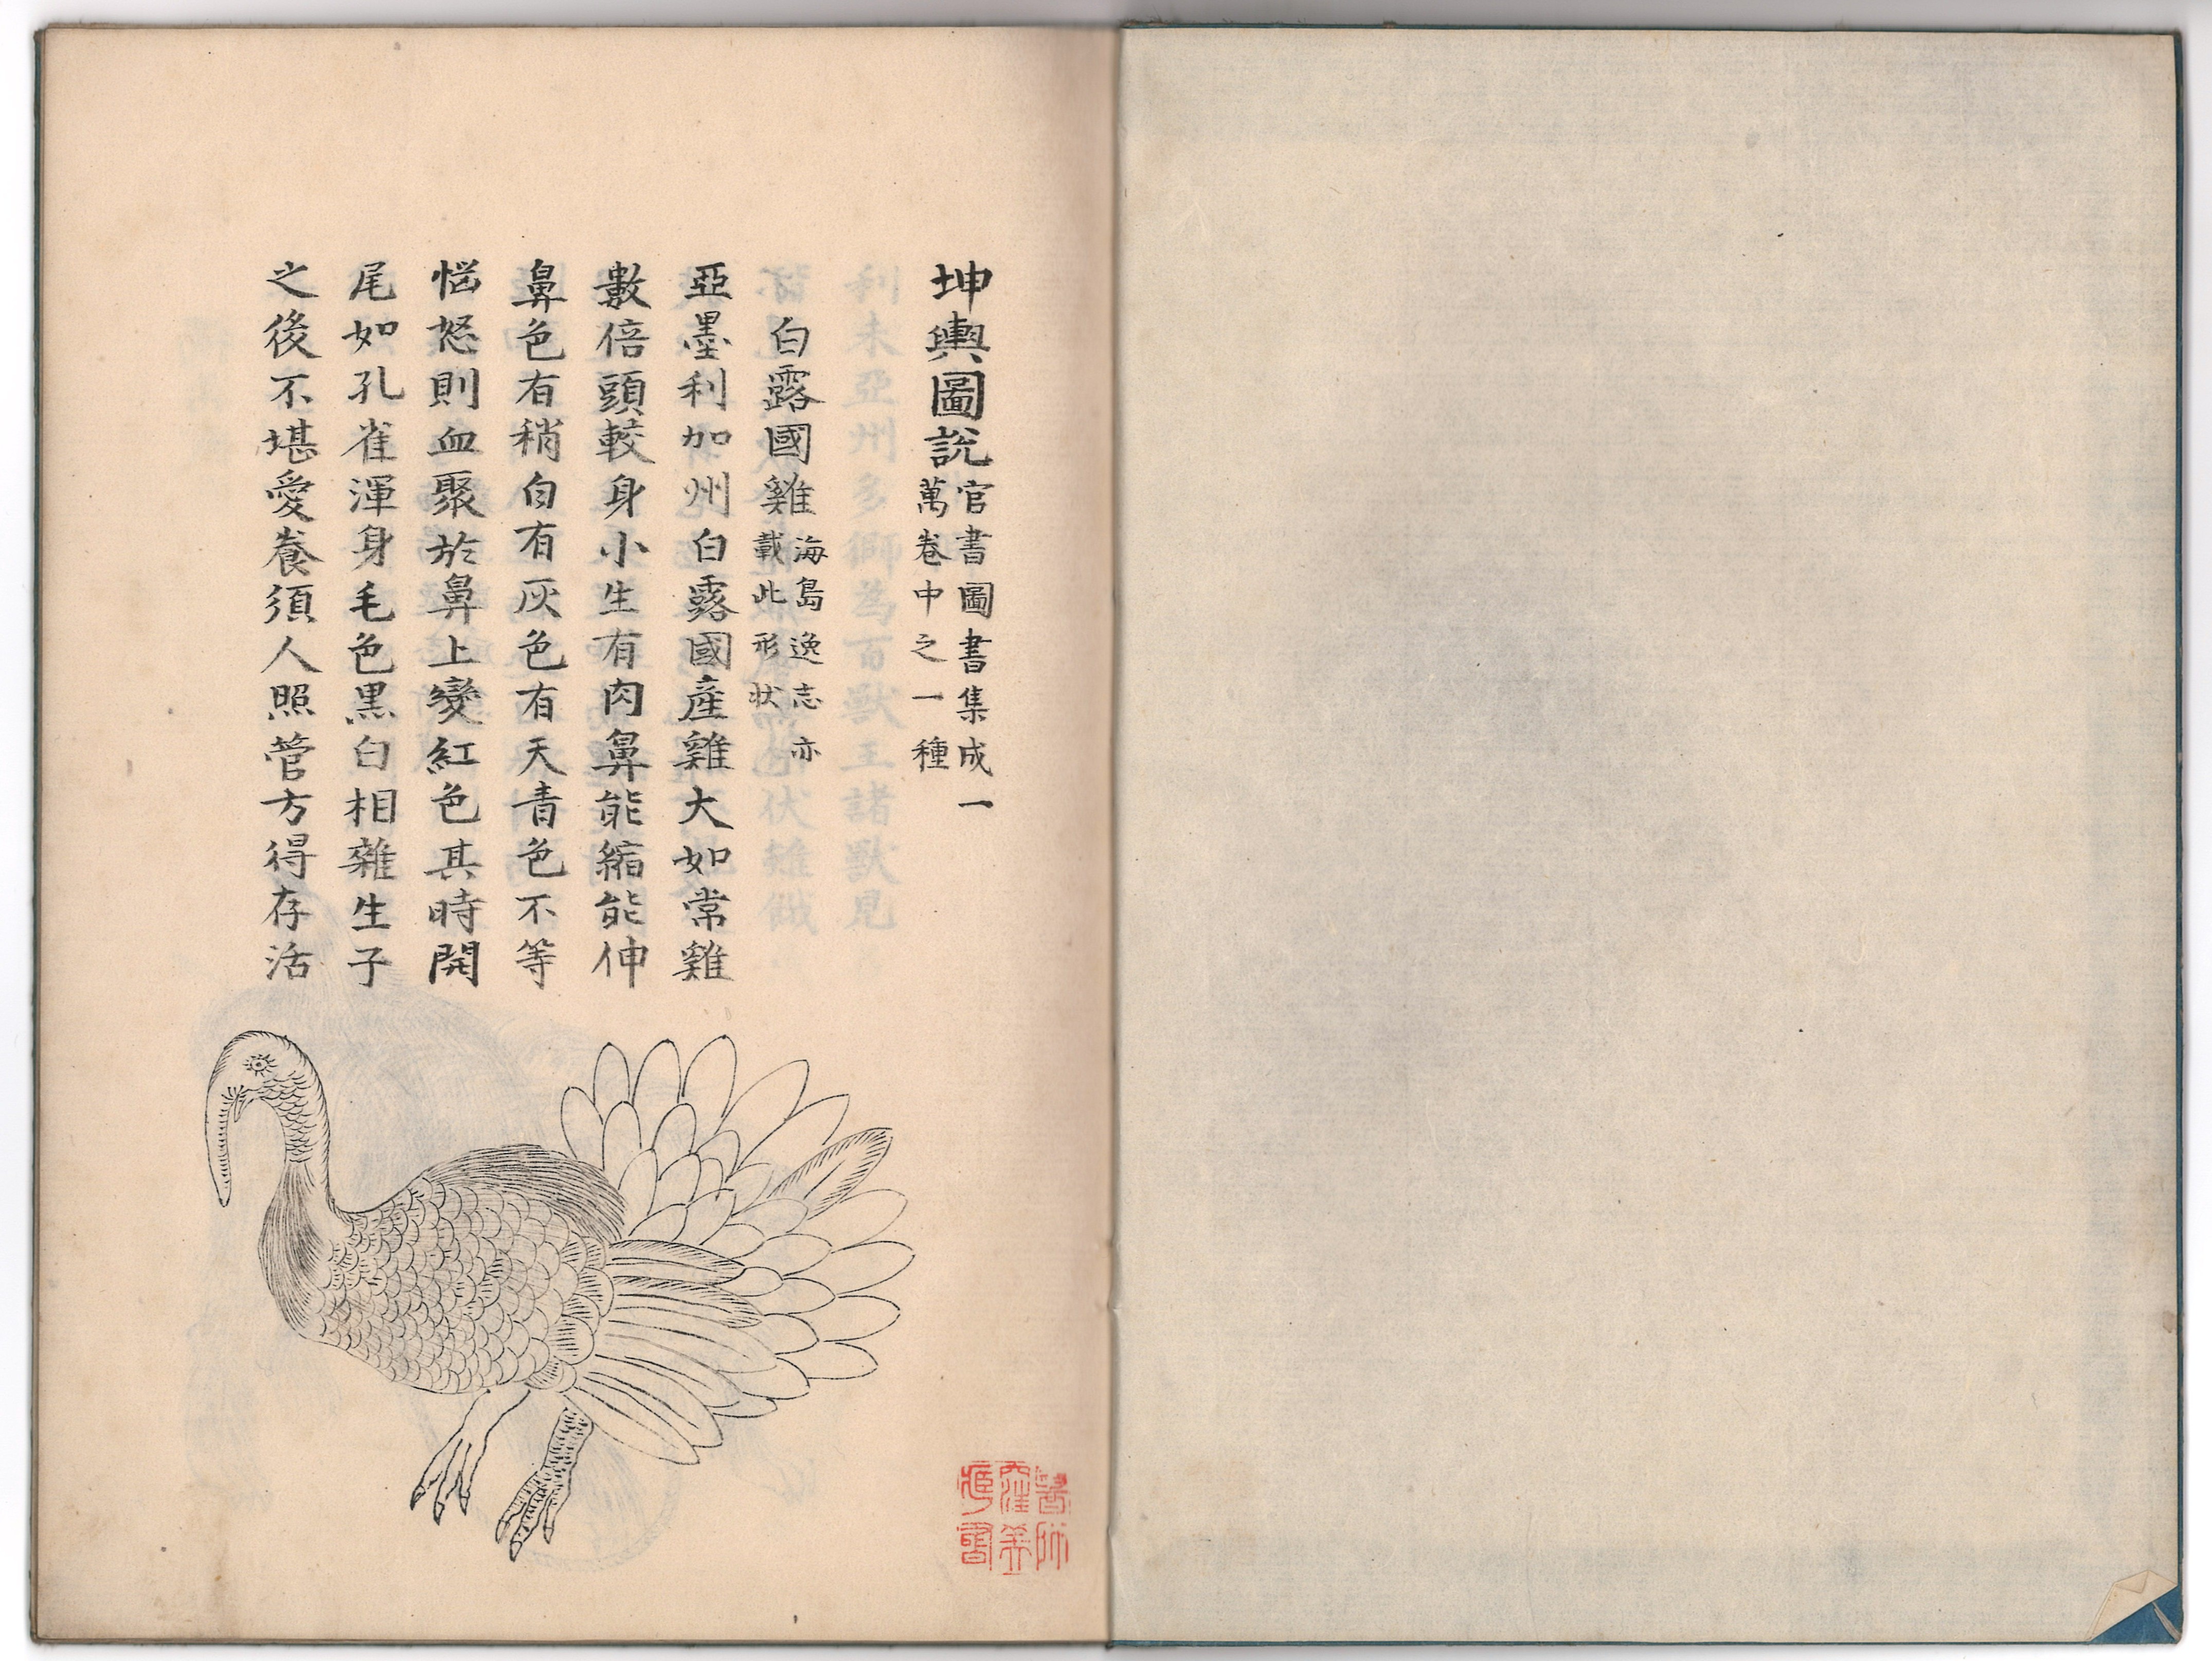 坤輿圖說 官書圖書集成一
萬卷中之一種
白露國雞 海島逸志亦
載此形状
亞墨利加州白露國産雞大如常雞
數倍頭較身小生有肉鼻能縮能伸
鼻色有稍白有灰色有天青色不等
惱怒則血聚於鼻上變紅色其時開
尾如孔雀渾身毛色黒白相雜生子
之後不堪愛養須人照管方得存活